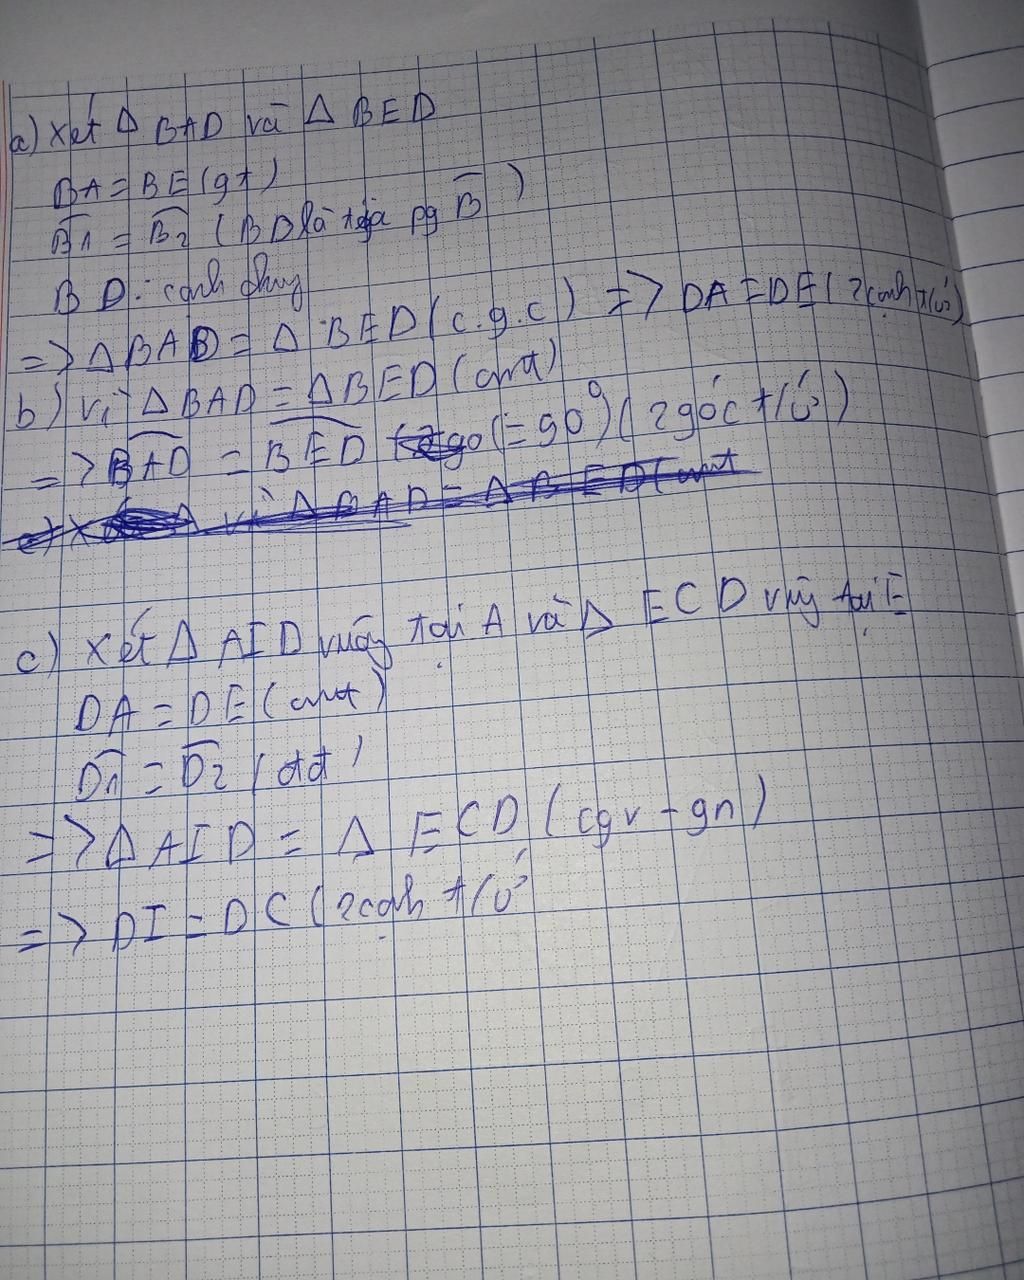 a) Xét Δ BAD và Δ BED
BA = BE (gt)
B̂1 = B̂2 (BD là tia pg B̂)
BD: cạnh chung
=> ΔBAD = Δ BED (c.g.c) => DA = DE (2 cạnh t/ứ)
b) Vì ΔBAD = ΔBED (cmt)
=> B͡AD = B͡ED (= 90⁰) (2 góc t/ứ)
vì Δ BAD = Δ BED (cmt
c) Xét Δ AID vuông tại A và Δ ECD vuông tại E
DA = DE (cmt)
D̂1 = D̂2 (đđ)
=> Δ AID = Δ ECD (cgv - gn)
=> DI = DC (2 cạnh t/ứ